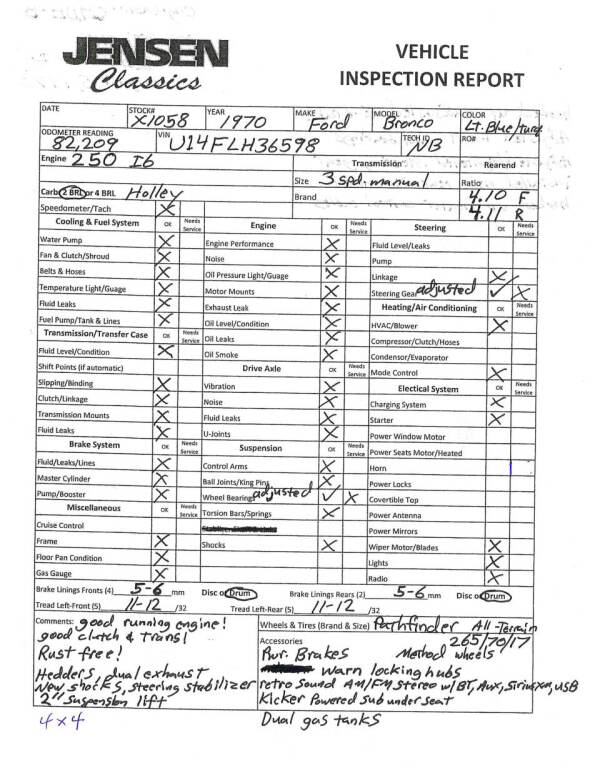 JENSEN
Classics
VEHICLE
INSPECTION REPORT
DATE STOCK# X1058 YEAR 1970 MAKE Ford MODEL Bronco COLOR Lt. Blue/turq
ODOMETER READING 82,209 VIN U14FLH36598 TECH ID NB RO#
Engine 250 I6 Transmission Rearend
Size 3 spd. manual Ratio 4.10 F
Carb 2 BRL or 4 BRL Holley Brand 4.11 R
Speedometer/Tach X
Cooling & Fuel System OK Needs Service Engine OK Needs Service Steering OK Needs Service
Water Pump X Engine Performance X Fluid Level/Leaks
Fan & Clutch/Shroud X Noise X Pump
Belts & Hoses X Oil Pressure Light/Guage X Linkage X
Temperature Light/Guage X Motor Mounts X Steering Gear adjusted ✓ X
Fluid Leaks X Exhaust Leak X Heating/Air Conditioning OK Needs Service
Fuel Pump/Tank & Lines X Oil Level/Condition X HVAC/Blower X
Transmission/Transfer Case OK Needs Service Oil Leaks X Compressor/Clutch/Hoses
Fluid Level/Condition X Oil Smoke X Condensor/Evaporator
Shift Points (if automatic) Drive Axle OK Needs Service Mode Control X
Slipping/Binding X Vibration X Electical System OK Needs Service
Clutch/Linkage X Noise X Charging System X
Transmission Mounts X Fluid Leaks X Starter X
Fluid Leaks X U-Joints X Power Window Motor
Brake System OK Needs Service Suspension OK Needs Service Power Seats Motor/Heated
Fluid/Leaks/Lines X Control Arms X Horn
Master Cylinder X Ball Joints/King Pins X Power Locks
Pump/Booster X Wheel Bearings adjusted ✓ X Covertible Top
Miscellaneous OK Needs Service Torsion Bars/Springs X Power Antenna
Cruise Control Power Mirrors
Frame X Shocks X Wiper Motor/Blades X
Floor Pan Condition X Lights X
Gas Gauge X Radio X
Brake Linings Fronts (4) 5-6 mm Disc or Drum Brake Linings Rears (2) 5-6 mm Disc or Drum
Tread Left-Front (5) 11-12 /32 Tread Left-Rear (5) 11-12 /32
Comments: good running engine! Wheels & Tires (Brand & Size) Pathfinder All-Terrain
good clutch & trans! Accessories 265/70/17
Rust free! Pwr. Brakes Method wheels
Hedders, dual exhaust Warn locking hubs
New shocks, steering stabilizer retro Sound AM/FM Stereo w/BT, Aux, Siriusxm, USB
2" Suspension lift Kicker Powered Sub under seat
4x4 Dual gas tanks